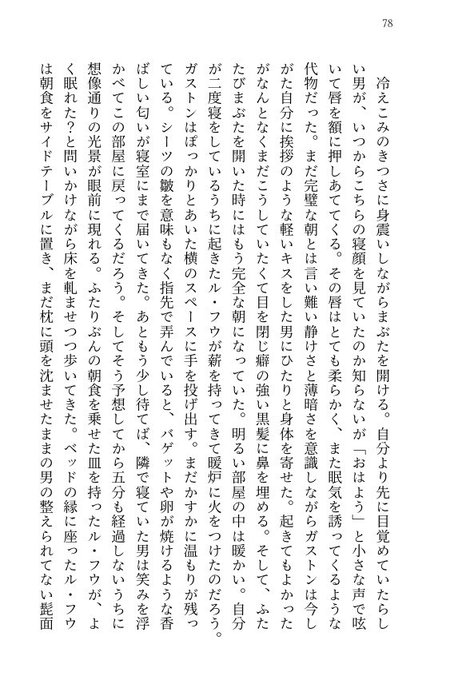 78
　冷えこみのきつさに身震いしながらまぶたを開ける。自分より先に目覚めていたらし
い男が、いつからこちらの寝顔を見ていたのか知らないが「おはよう」と小さな声で呟
いて唇を額に押しあててくる。その唇はとても柔らかく、また眠気を誘ってくるような
代物だった。まだ完璧な朝とは言い難い静けさと薄暗さを意識しながらガストンは今し
がた自分に挨拶のような軽いキスをした男にひたりと身体を寄せた。起きてもよかった
がなんとなくまだこうしていたくて目を閉じ癖の強い黒髪に鼻を埋める。そして、ふた
たびまぶたを開いた時にはもう完全な朝になっていた。明るい部屋の中は暖かい。自分
が二度寝をしているうちに起きたル・フウが薪を持ってきて暖炉に火をつけたのだろう。
ガストンはぽっかりとあいた横のスペースに手を投げ出す。まだかすかに温もりが残っ
ている。シーツの皺を意味もなく指先で弄んでいると、バゲットや卵が焼けるような香
ばしい匂いが寝室にまで届いてきた。あともう少し待てば、隣で寝ていた男は笑みを浮
かべてこの部屋に戻ってくるだろう。そしてそう予想してから五分も経過しないうちに
想像通りの光景が眼前に現れる。ふたりぶんの朝食を乗せた皿を持ったル・フウが、よ
く眠れた？と問いかけながら床を軋ませつつ歩いてきた。ベッドの縁に座ったル・フウ
は朝食をサイドテーブルに置き、まだ枕に頭を沈ませたままの男の整えられてない髭面